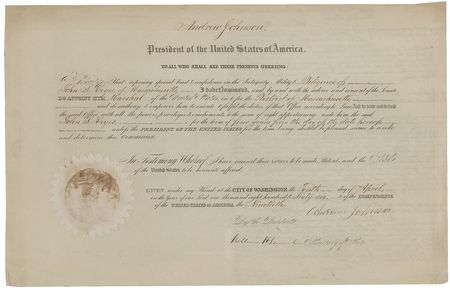 Andrew Johnson
President of the United States of America.
TO ALL WHO SHALL SEE THESE PRESENTS GREETING:
Know Ye, That reposing special trust & confidence in the Integrity, Ability & Diligence of
John S. Keyes of Massachusetts I have Nominated, and by and with the advice and consent of the Senate
DO APPOINT HIM Marshal of the United States in & for the District of Massachusetts
and do authorize & empower him to execute & fulfil the duties of that Office according to Law, And to have and to hold
the said Office, with all the powers, privileges & emoluments to the same of right appertaining unto him the said
John S. Keyes for the term of four years from the day of the date hereof
until the PRESIDENT OF THE UNITED STATES for the time being should be pleased sooner to revoke
and determine this Commission.
In Testimony Whereof, I have caused these Letters to be made Patent, and the Seal
of the United States to be hereunto affixed.
GIVEN under my Hand at the CITY OF WASHINGTON the Tenth day of April
in the Year of our Lord one thousand eight hundred & sixty six, & of the INDEPENDENCE
of the UNITED STATES OF AMERICA, the Ninetieth.
Andrew Johnson
By the President
Secretary of State